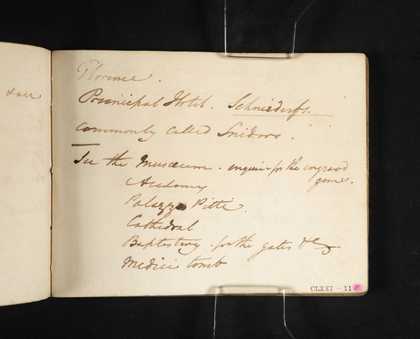 Florence.
Principal Hotel. Schniedorfs
commonly called Snidors.
See the Museum. enquire for the engraved
gems.
Academy
Palazzo Pitte.
Cathedral
Baptistery. for the gates &c
Medici tomb
CLXXI - 11